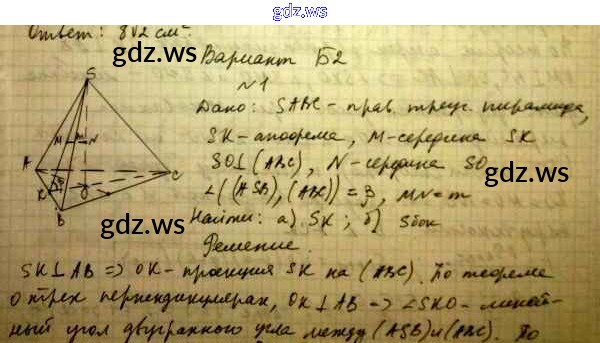 gdz.ws
Ответ: 8√2 см².
Вариант Б2
№1
Дано: SABC - прав. треуг. пирамида,
SK - апофема, M - середина SK
SO⊥(ABC), N - середина SO
∠((ASB),(ABC)) = β, MN = m
Найти: а) SK; б) Sбок
Решение.
SK⊥AB => OK - проекция SK на (ABC). По теореме
о трех перпендикулярах, OK⊥AB => ∠SKO - линей-
ный угол двугранного угла между (ASB) и (ABC). По
S
M
N
A
K
β
O
B
C
gdz.ws
gdz.ws
gdz.ws
gdz.ws
gdz.ws